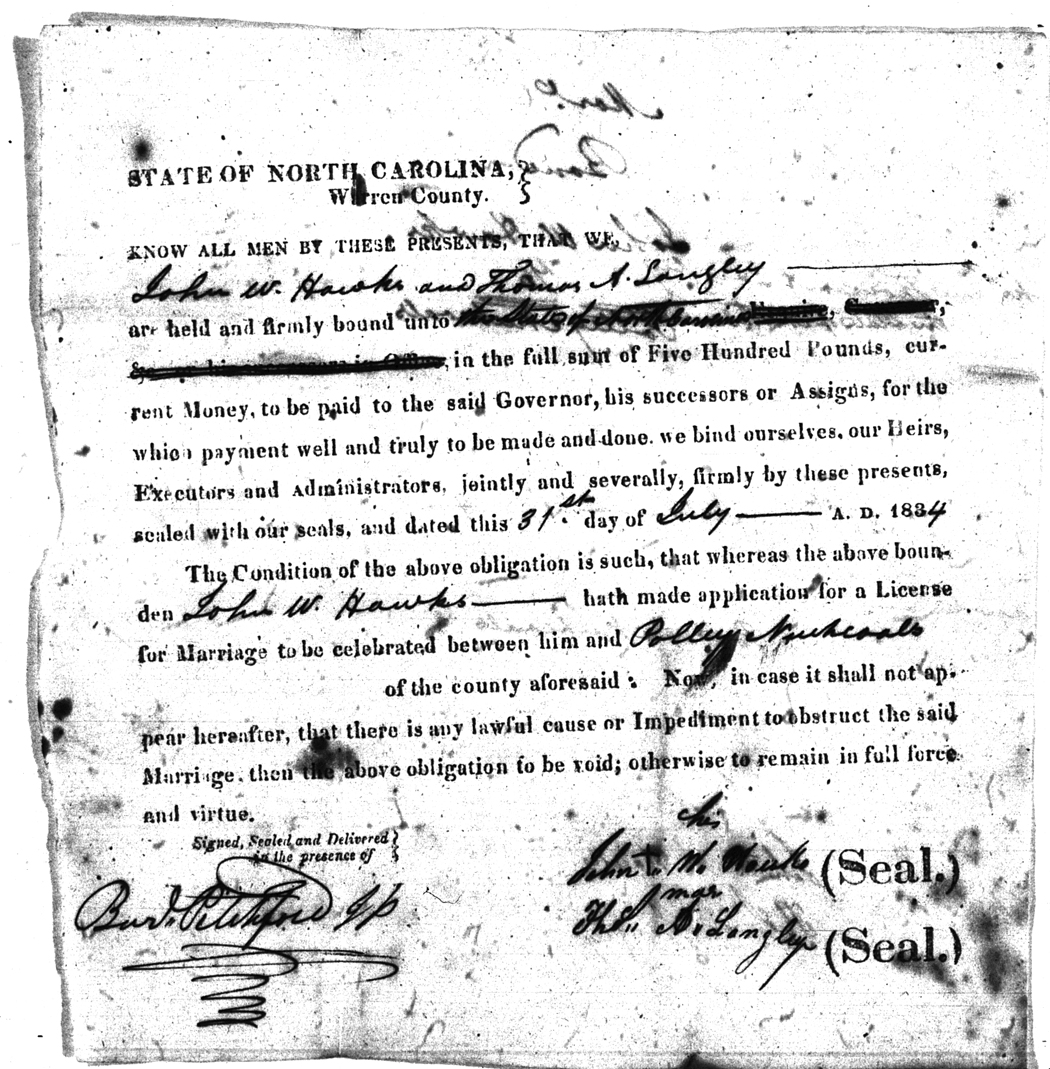 STATE OF NORTH CAROLINA,
Warren County.
KNOW ALL MEN BY THESE PRESENTS, THAT WE,
John W. Hawks and Thomas A. Langley
are held and firmly bound unto the State of North Carolina
in the full sum of Five Hundred Pounds, cur-
rent Money, to be paid to the said Governor, his successors or Assigns, for the
which payment well and truly to be made and done. we bind ourselves, our Heirs,
Executors and Administrators, jointly and severally, firmly by these presents,
sealed with our seals, and dated this 31st day of July A. D. 1834
The Condition of the above obligation is such, that whereas the above boun-
den John W. Hawks hath made application for a License
for Marriage to be celebrated between him and Polley
of the county aforesaid: Now, in case it shall not ap-
pear hereafter, that there is any lawful cause or Impediment to obstruct the said
Marriage. then the above obligation to be void; otherwise to remain in full force
and virtue.
Signed, Sealed and Delivered
in the presence of
his
John + W. Hawks (Seal.)
mar
Tho.s A. Langley (Seal.)
Pitchford JP